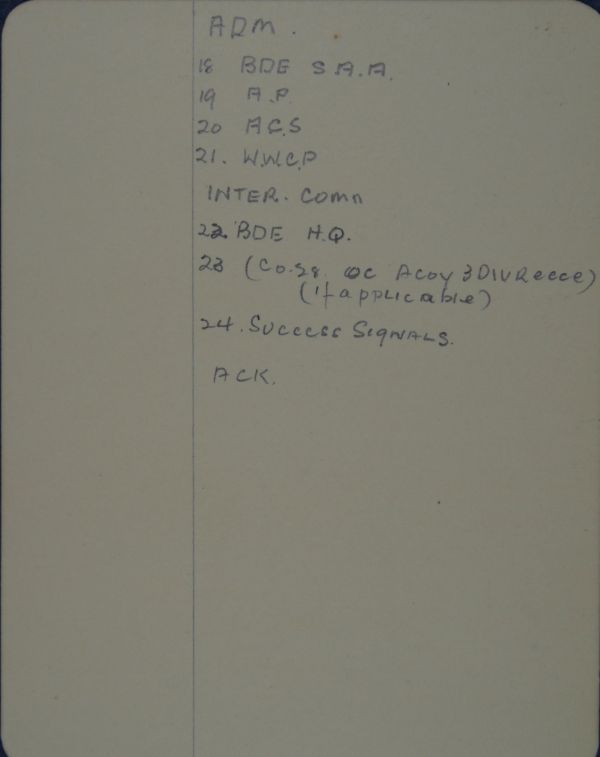 ADM.
18 BDE S.A.A.
19 A.P.
20 A.C.S
21. W.W.C.P
INTER. COMn
22. BDE H.Q.
23 (Co-sg. OC A coy 3 DIV Recce)
(if applicable)
24. SUCCESS SIGNALS.
ACK.